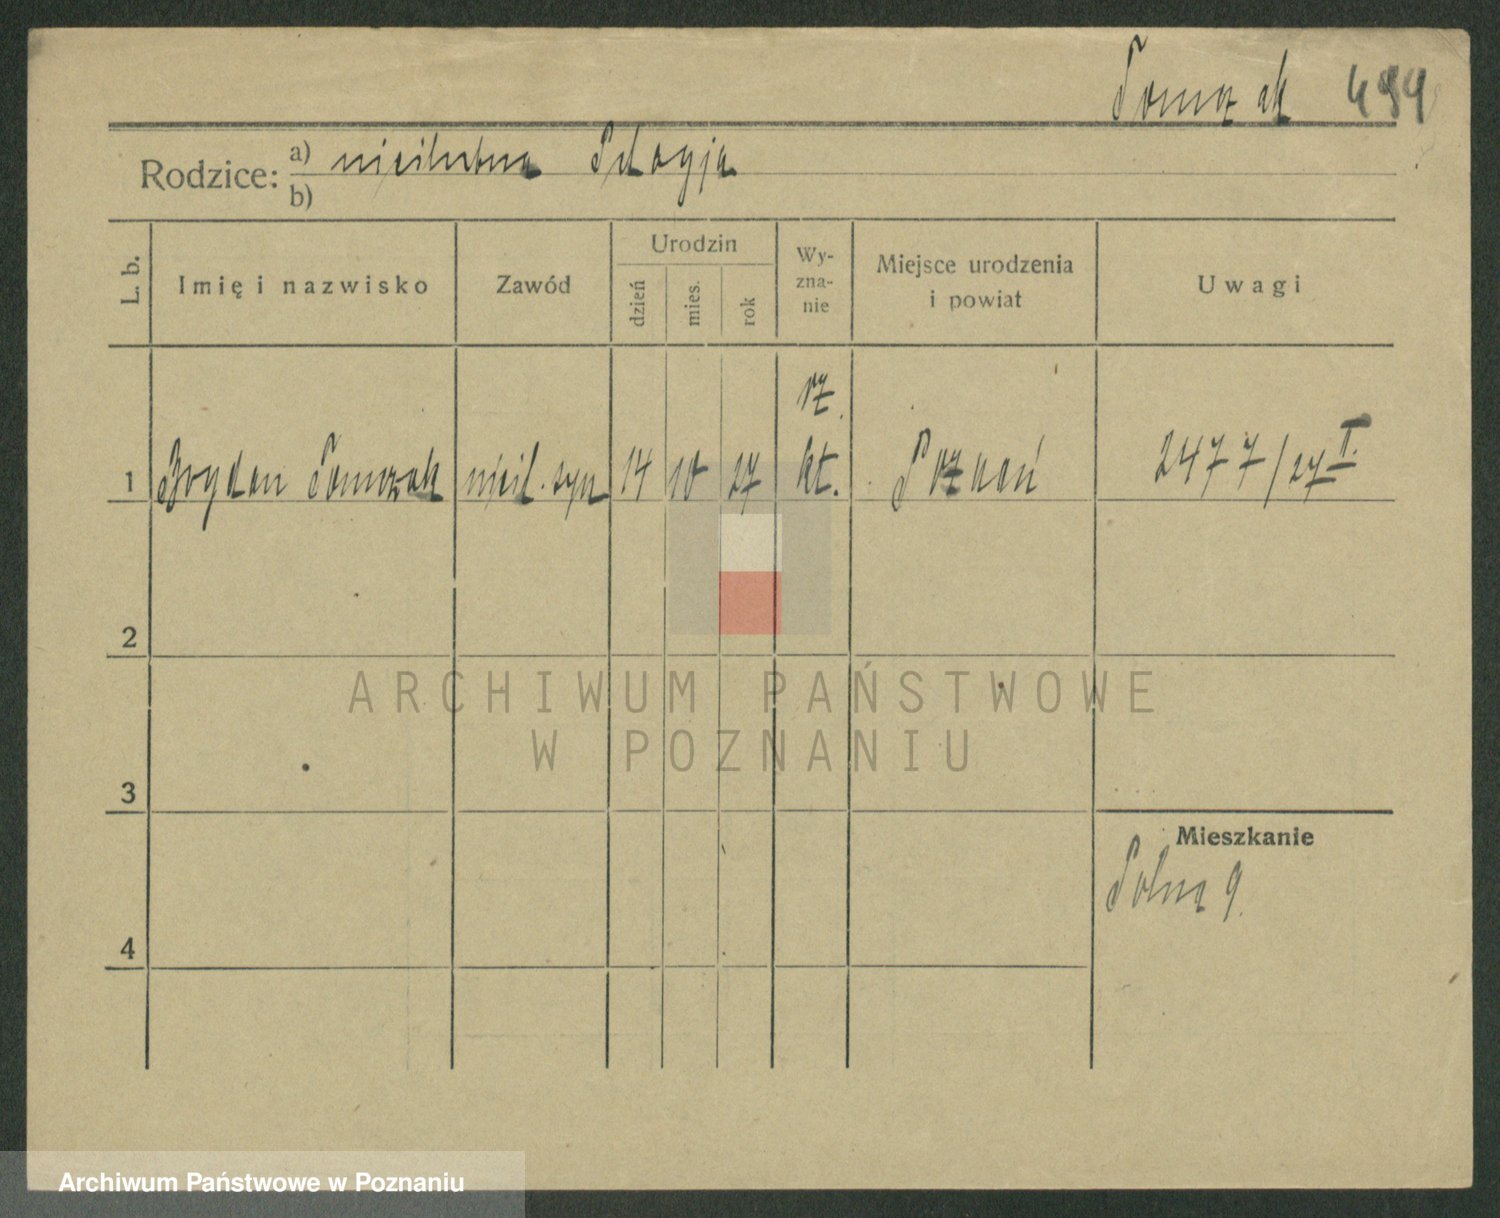 Tomczak 499
Rodzice: a) nieślubna Pelagja
b)
L. b. Imię i nazwisko Zawód Urodzin dzień mies. rok Wy-zna-nie Miejsce urodzenia i powiat Uwagi
1 Bogdan Tomczak nieśl. syn 14 10 27 rz. kt. Poznań 2477/27 I.
2
3
Mieszkanie
Polna 9.
4
ARCHIWUM PAŃSTWOWE
W POZNANIU
Archiwum Państwowe w Poznaniu